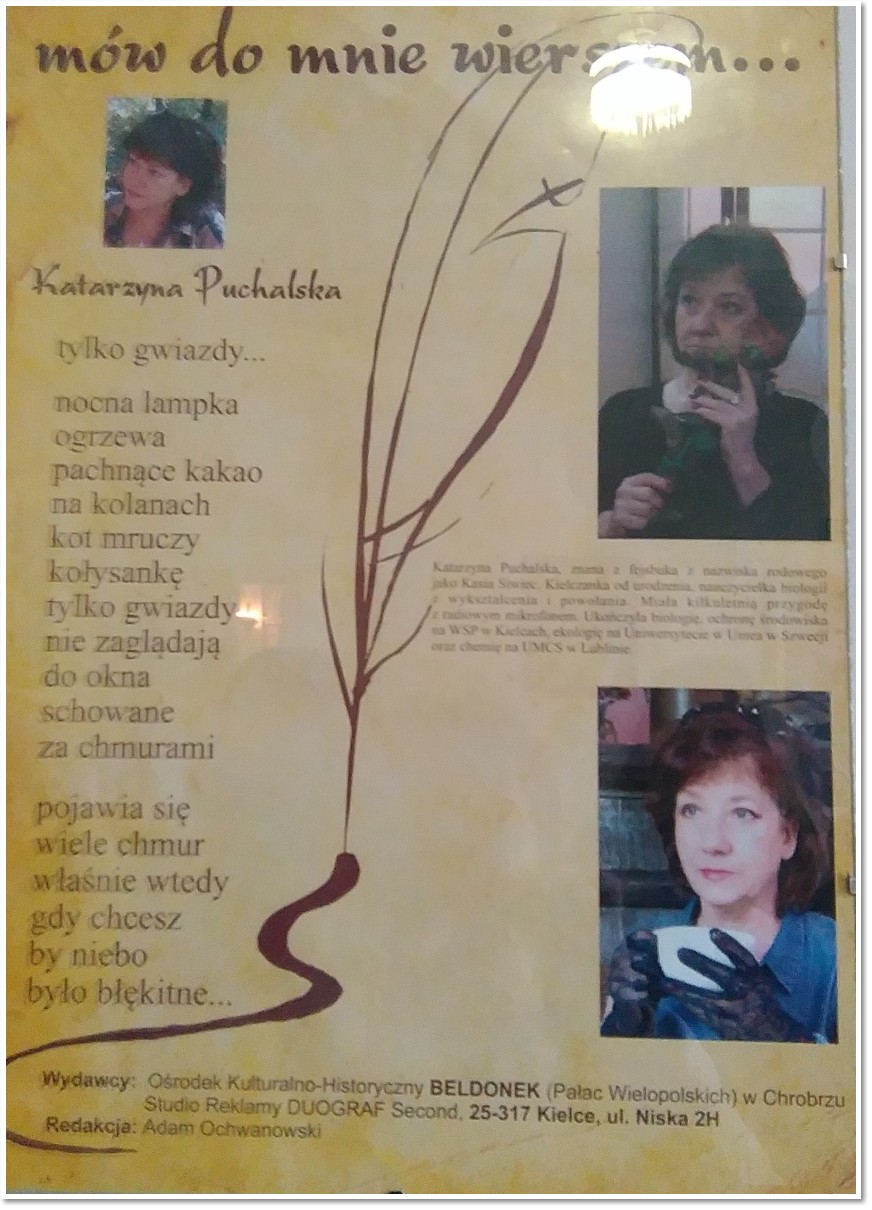 mów do mnie wierszem...
Katarzyna Puchalska
tylko gwiazdy...
nocna lampka
ogrzewa
pachnące kakao
na kolanach
kot mruczy
kołysankę
tylko gwiazdy
nie zaglądają
do okna
schowane
za chmurami
pojawia się
wiele chmur
właśnie wtedy
gdy chcesz
by niebo
było błękitne...
Katarzyna Puchalska, znana z fejsbuka z nazwiska rodowego
jako Kasia Siwiec. Kielczanka od urodzenia, nauczycielka biologii
z wykształcenia i powołania. Miała kilkuletnią przygodę
z radiowym mikrofonem. Ukończyła biologię, ochronę środowiska
na WSP w Kielcach, ekologię na Uniwersytecie w Umea w Szwecji
oraz chemię na UMCS w Lublinie.
Wydawcy: Ośrodek Kulturalno-Historyczny BELDONEK (Pałac Wielopolskich) w Chrobrzu
Studio Reklamy DUOGRAF Second, 25-317 Kielce, ul. Niska 2H
Redakcja: Adam Ochwanowski